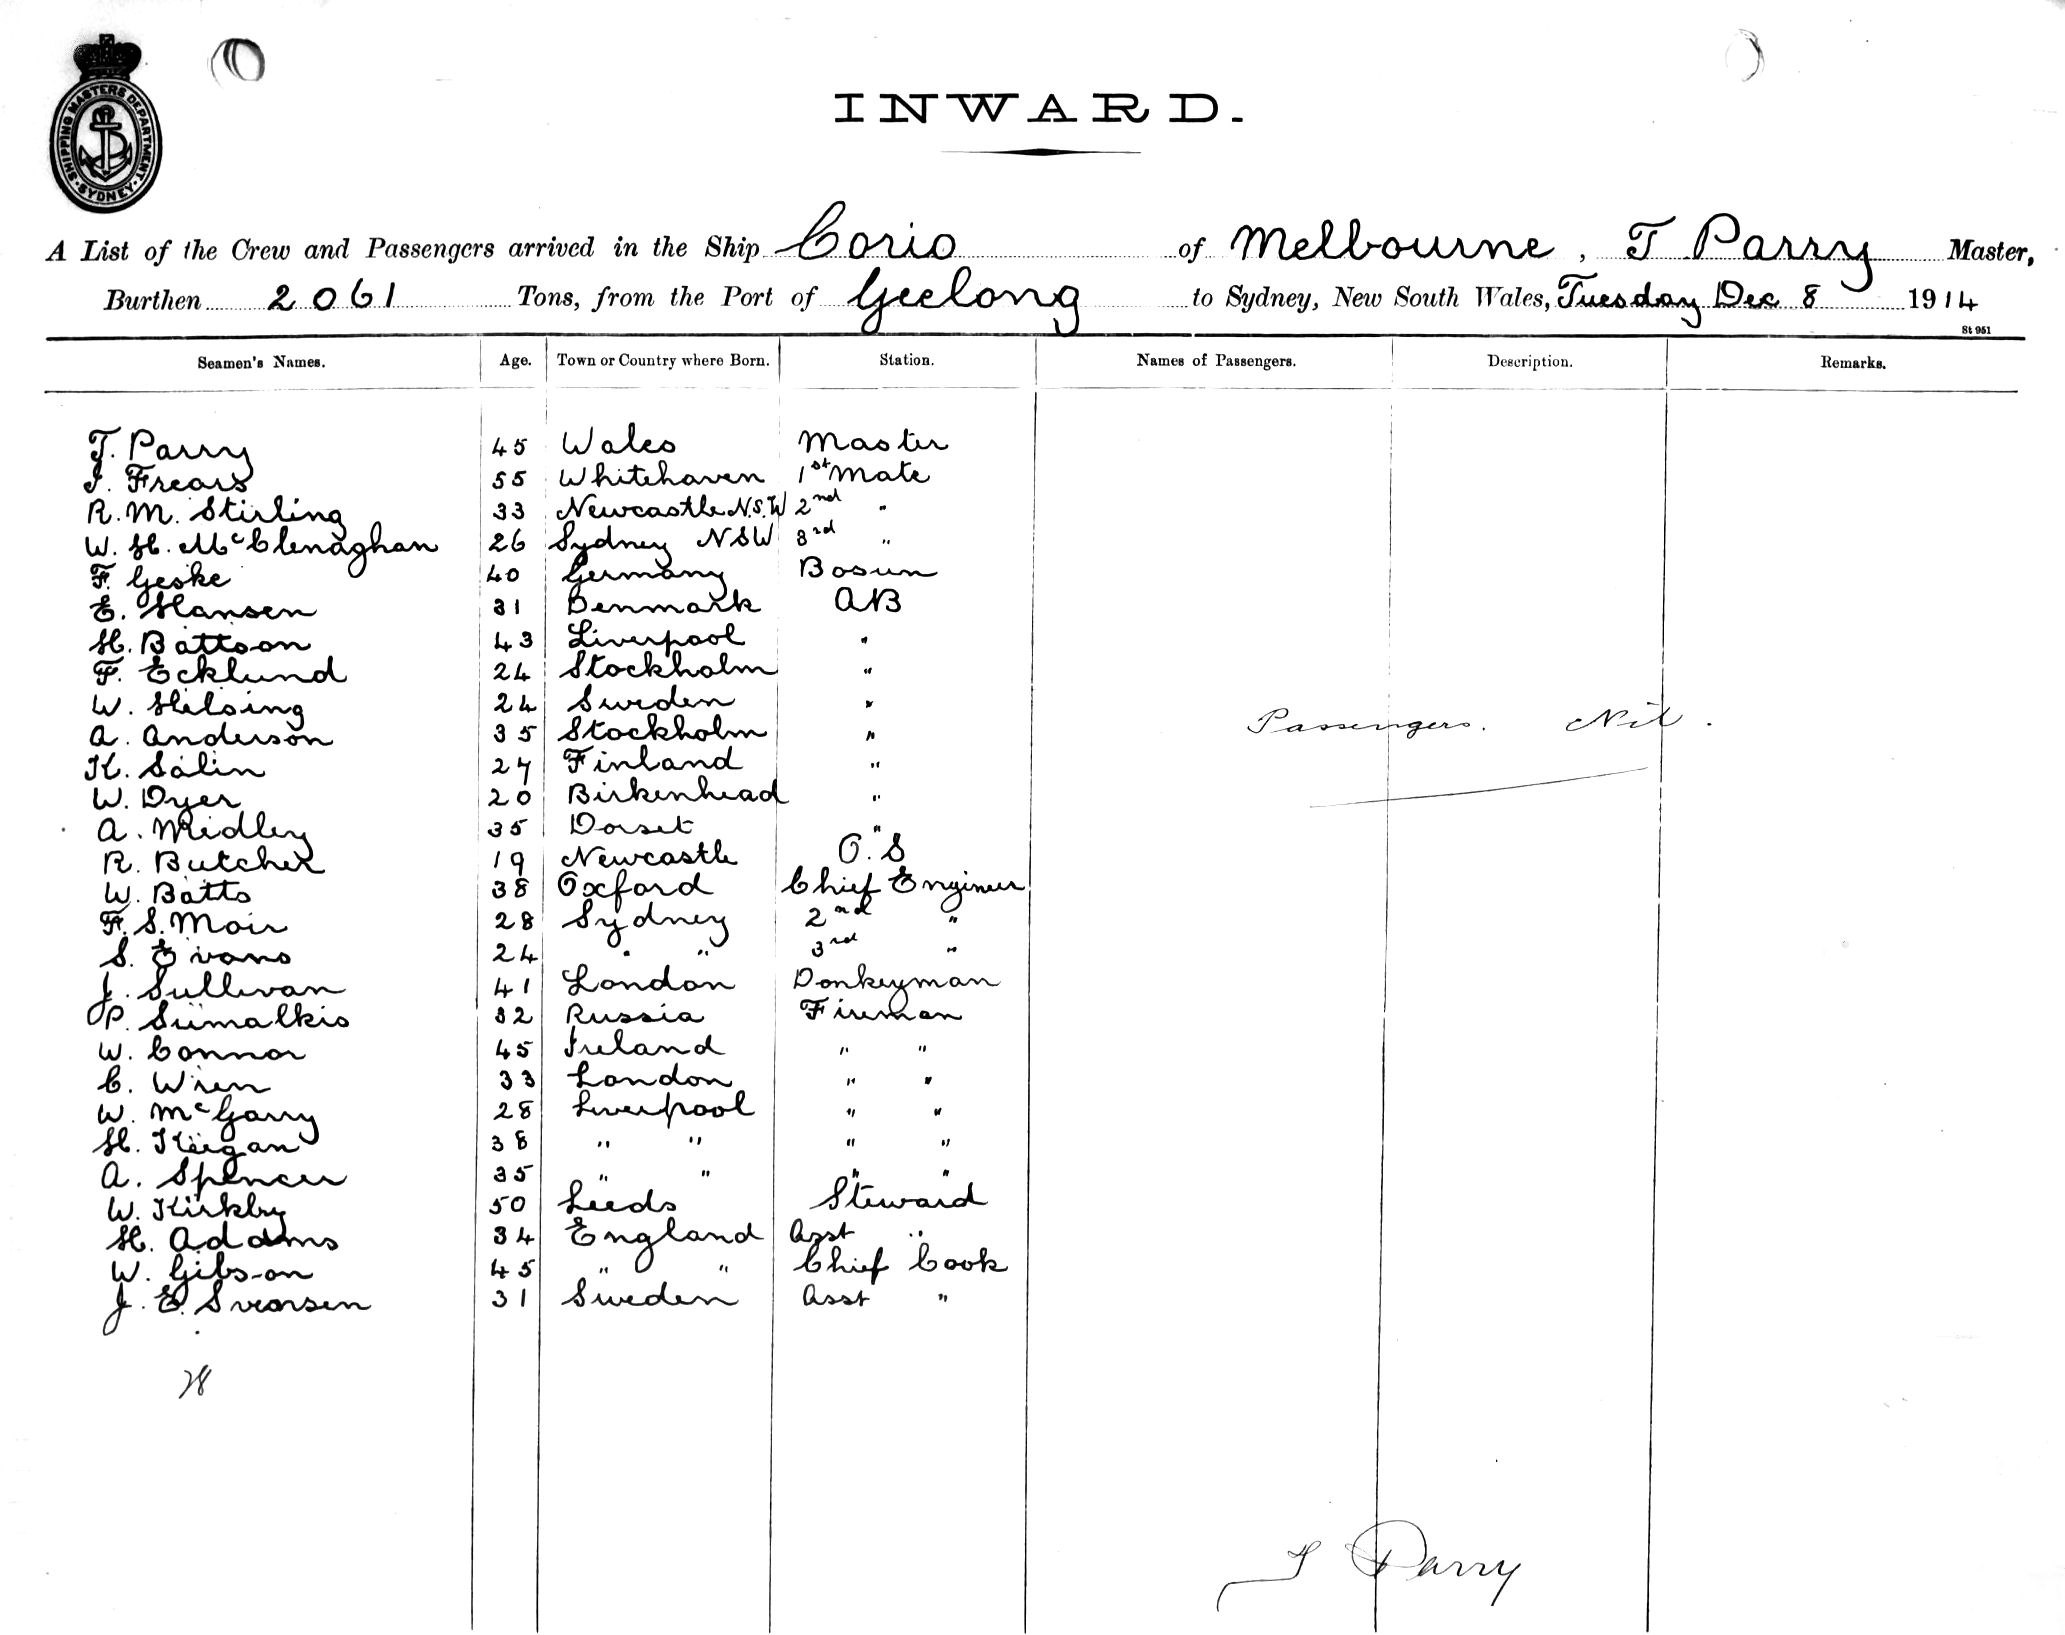 SHIPPING MASTERS DEPARTMENT
SYDNEY
INWARD.
A List of the Crew and Passengers arrived in the Ship Corio of Melbourne, T Parry Master,
Burthen 2061 Tons, from the Port of Geelong to Sydney, New South Wales, Tuesday Dec 8 1914
St 951
Seamen's Names. Age. Town or Country where Born. Station. Names of Passengers. Description. Remarks.
T. Parry 45 Wales Master
J. Frears 55 Whitehaven 1st Mate
R. M. Stirling 33 Newcastle N.S.W 2nd "
W. H. McClenaghan 26 Sydney NSW 3rd "
F. Geske 40 Germany Bosun
E. Hansen 31 Denmark AB
H. Battson 43 Liverpool "
F. Ecklund 24 Stockholm "
W. Helsing 24 Sweden "
Passengers. Nil.
A. Anderson 35 Stockholm "
K. Salin 27 Finland "
W. Dyer 20 Birkenhead "
A. Midley 35 Dorset "
R. Butcher 19 Newcastle O.S
W. Batts 38 Oxford Chief Engineer
F. S. Moir 28 Sydney 2nd "
S. Evans 24 " " 3rd "
J. Sullivan 41 London Donkeyman
P. Siimalkis 32 Russia Fireman
W. Connor 45 Ireland " "
C. Wren 33 London " "
W. McGarry 28 Liverpool " "
H. Keegan 38 " " " "
A. Spencer 35 " " " "
W. Kirkby 50 Leeds Steward
H. Adams 34 England Asst "
W. Gibson 45 " " Chief Cook
J. E. Svensen 31 Sweden Asst "
28
T Parry